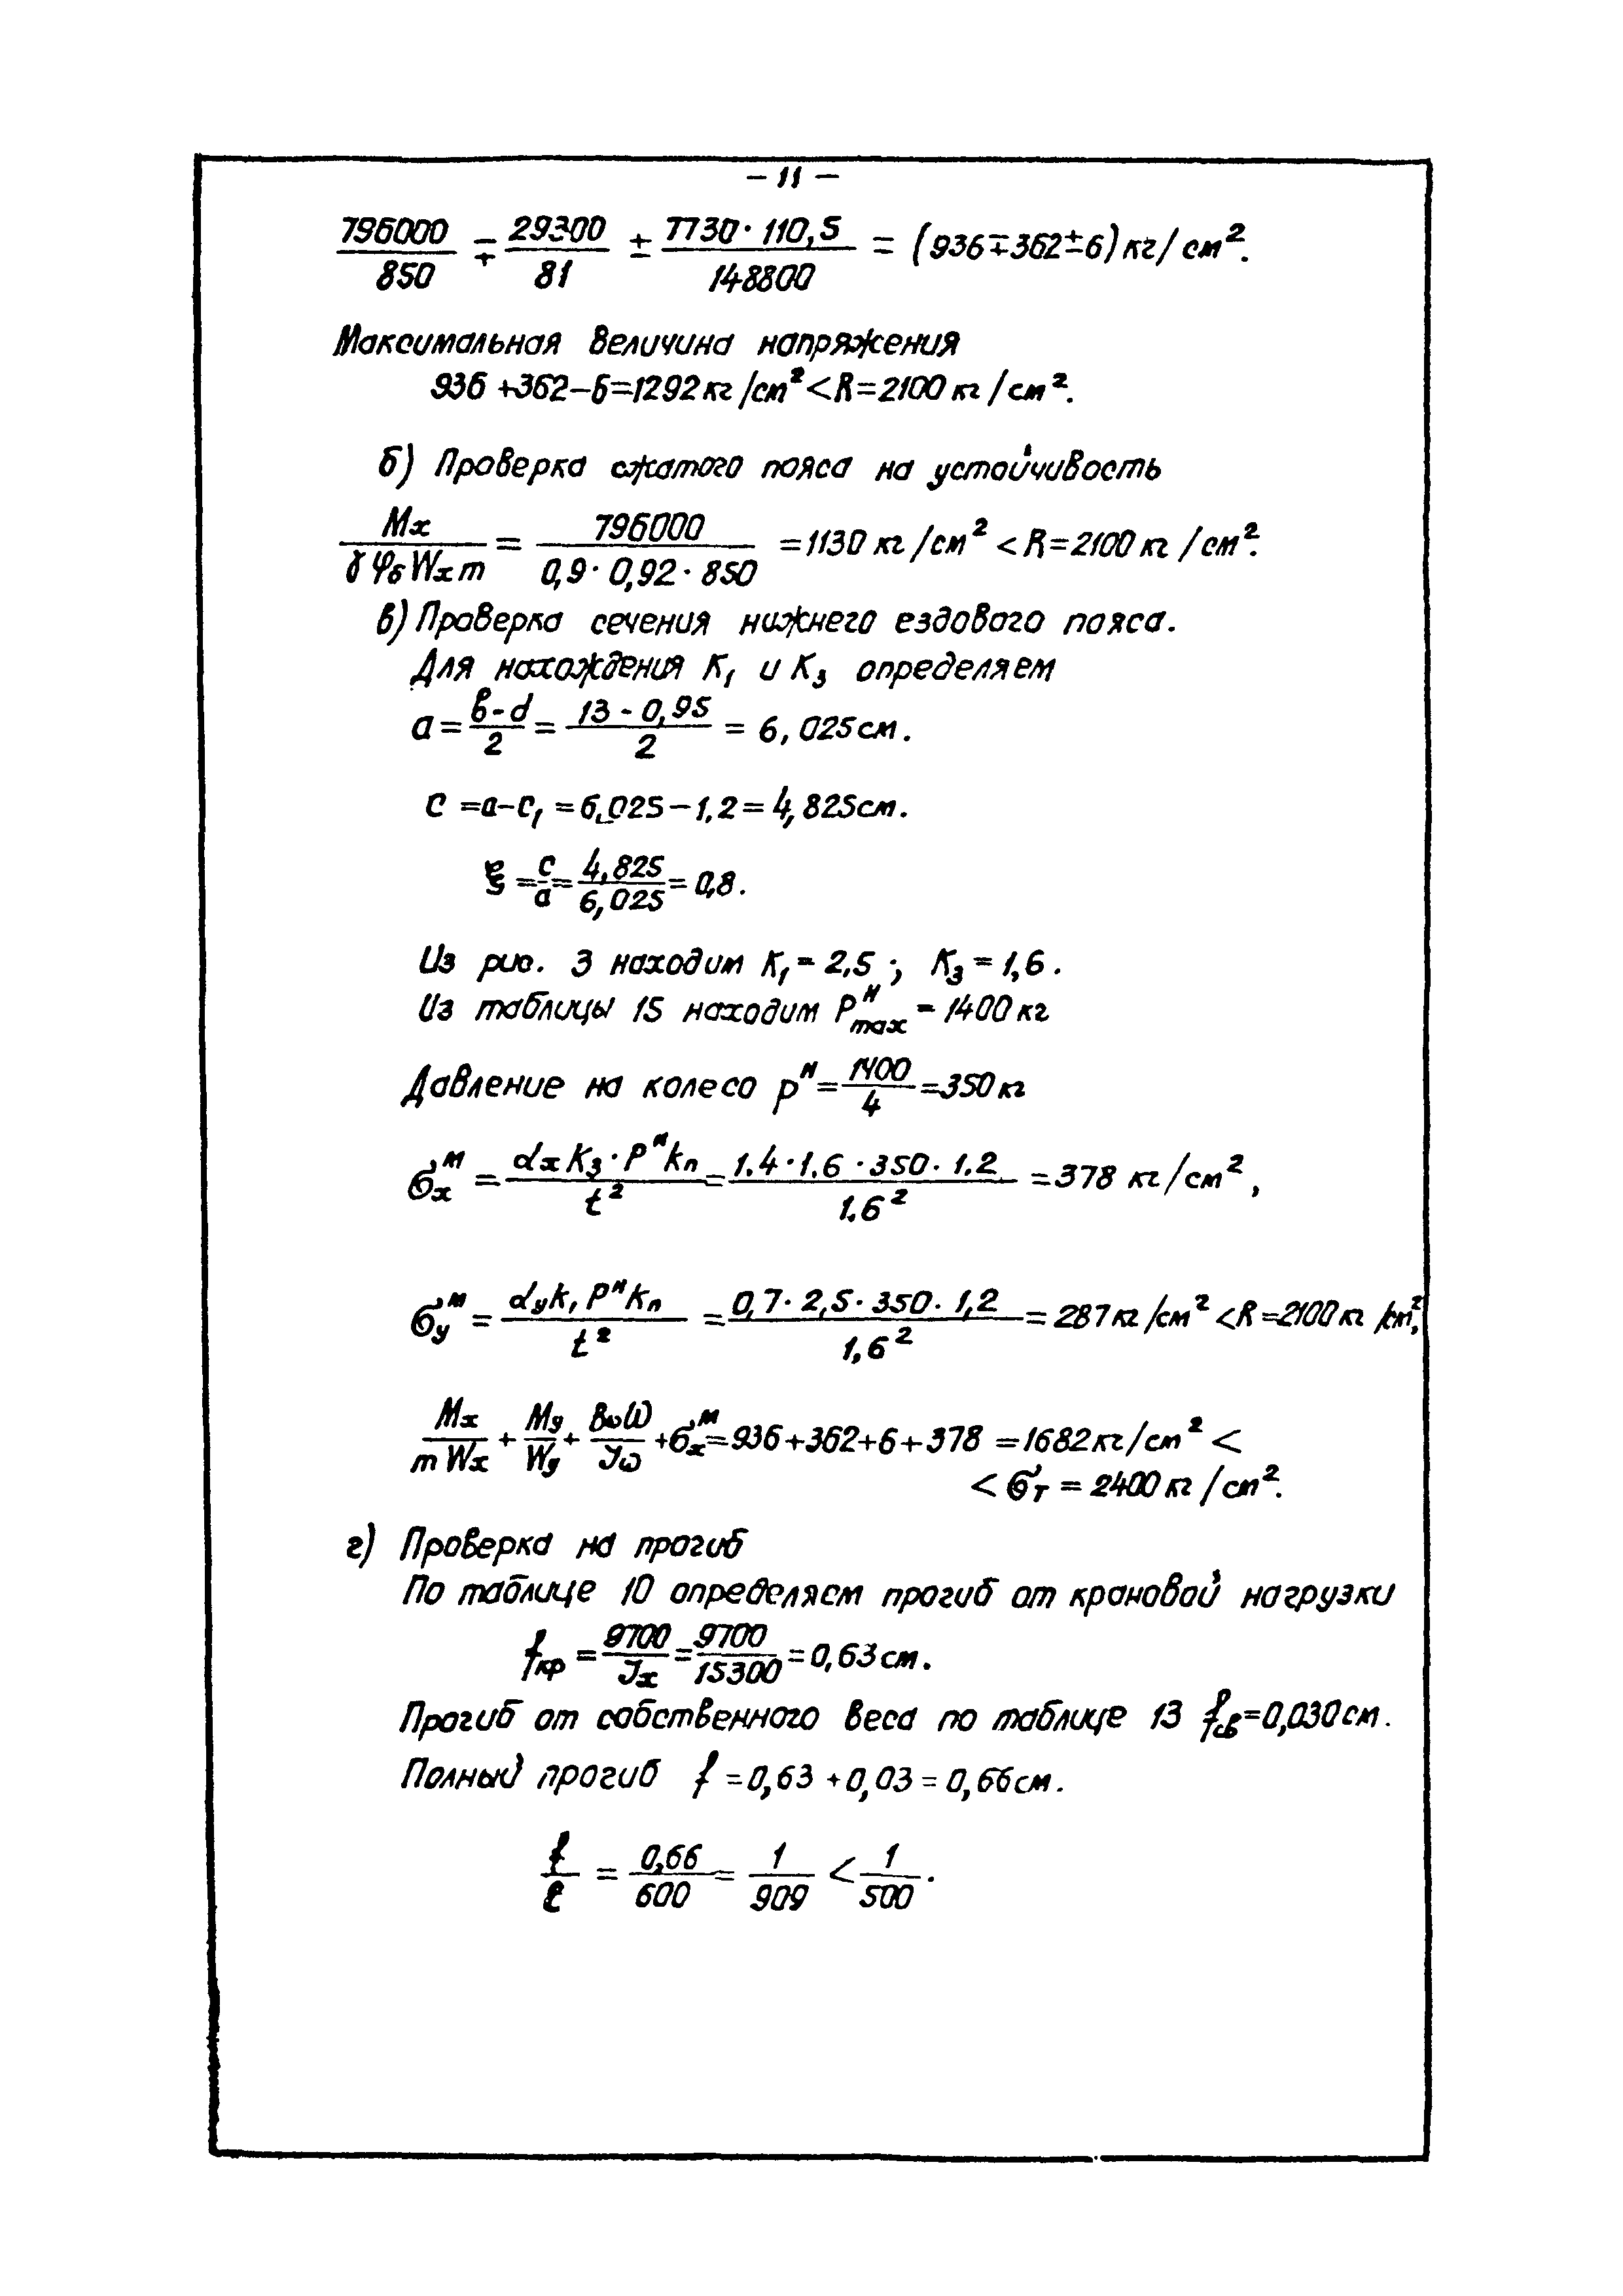 – 11 –
796000/850 ∓ 29300/81 ± 7730·110,5/148800 = (936∓362±6) кг/см².
Максимальная величина напряжения
936+362–6=1292 кг/см²<R=2100 кг/см².
б) Проверка сжатого пояса на устойчивость
Mx/γφбWxm = 796000/0,9·0,92·850 =1130 кг/см² < R=2100 кг/см².
в) Проверка сечения нижнего ездового пояса.
Для нахождения K₁ и K₃ определяем
a = в-d/2 = 13-0,95/2 = 6,025 см.
c = a–c₁ = 6,025–1.2 = 4,825 см.
ξ = c/a = 4,825/6,025 = 0,8.
Из рис. 3 находим K₁ = 2,5; K₃ = 1,6.
Из таблицы 15 находим Pᴴmax = 1400 кг
Давление на колесо Pᴴ = 1400/4 = 350 кг
σxᴹ = αx K₃·Pᴴkп/t² = 1.4·1.6·350·1.2/1.6² = 378 кг/см²,
σyᴹ = αyk₁Pᴴkп/t² = 0,7·2,5·350·1,2/1,6² = 287 кг/см² < R=2100 кг/см²,
Mx/mWx + My/Wy + Bωω/Jω + σxᴹ = 936+362+6+378 = 1682 кг/см² <
< σт = 2400 кг/см².
г) Проверка на прогиб
По таблице 10 определяем прогиб от крановой нагрузки
fкр = 9700/Jx = 9700/15300 = 0,63 см.
Прогиб от собственного веса по таблице 13 fсв=0,030 см.
Полный прогиб f = 0,63 + 0,03 = 0,66 см.
f/ℓ = 0,66/600 = 1/909 < 1/500.